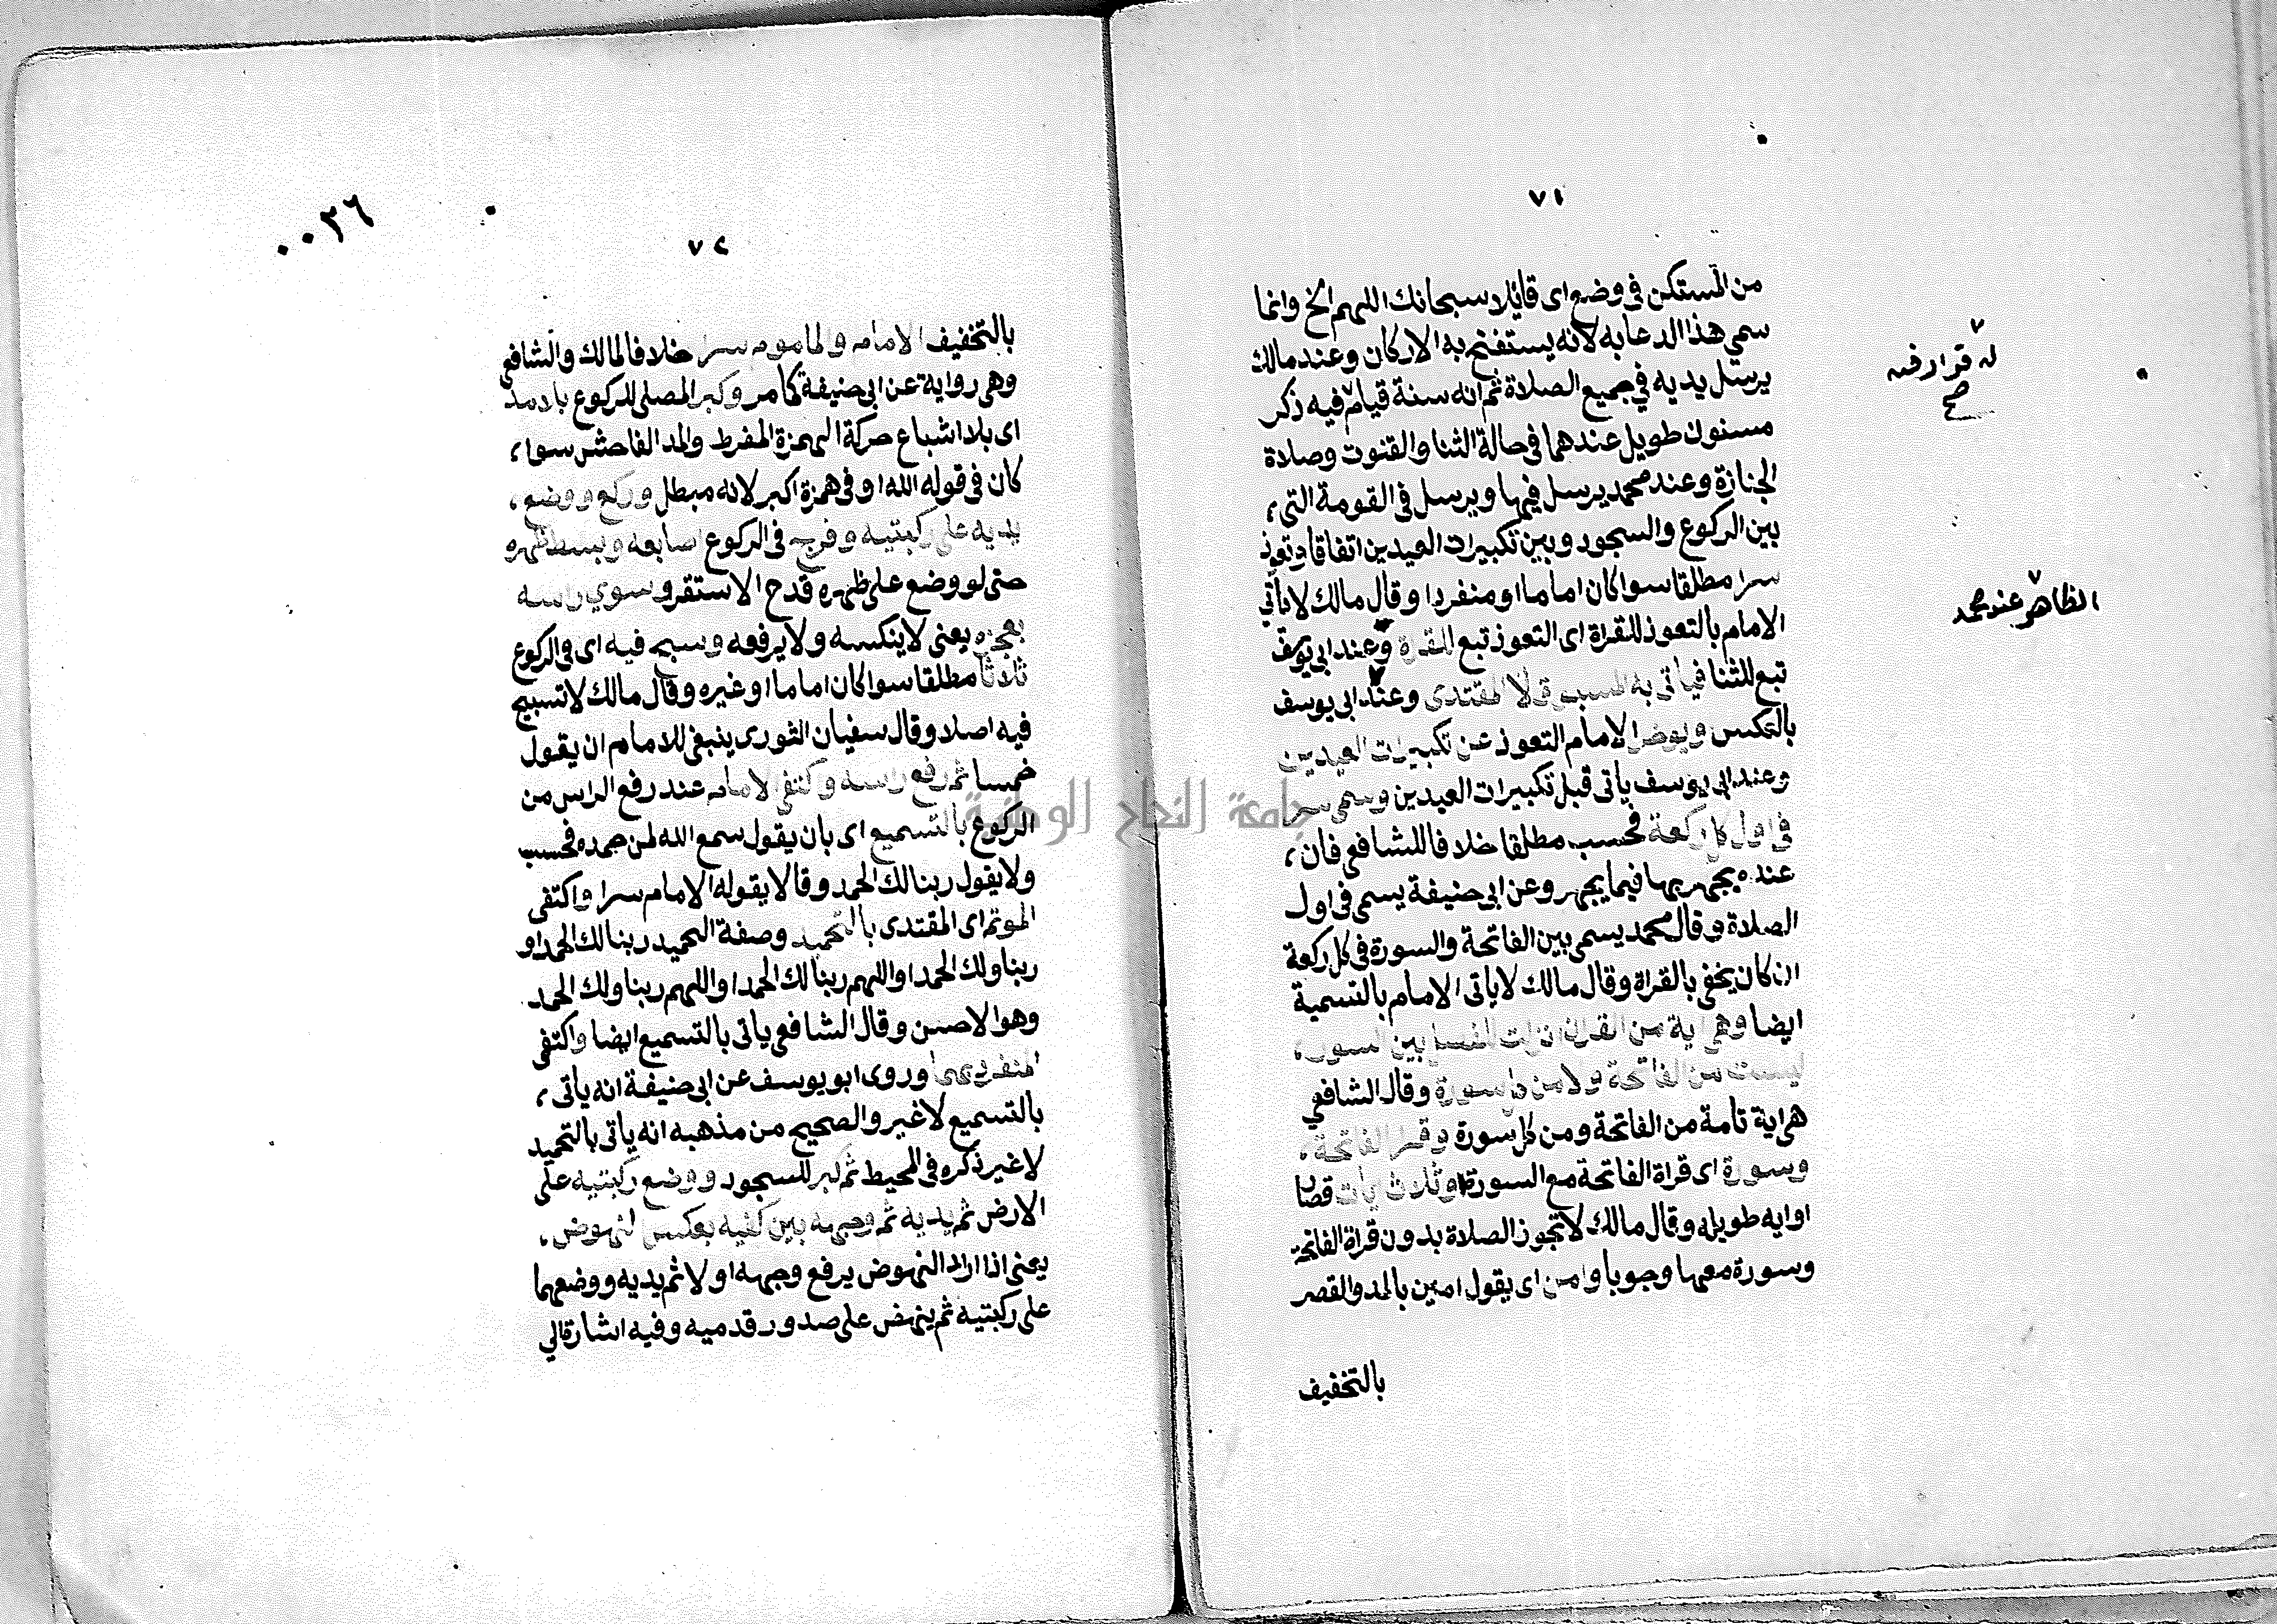 ٧١
من المستكن في وضع اى قايلا سبحانك اللهم الخ وانما
سمي هذا الدعا به لانه يستفتح به الاركان وعند مالك
يرسل يديه في جميع الصلاة ثم انه سنة قيام فيه ذكر
له قرار فنه
صح
مسنون طويل عندهما في حالة الثنا والقنوت وصلاة
الجنازة وعند محمد يرسل فيها ويرسل في القومة التي
بين الركوع والسجود وبين تكبيرات العيدين اتفاقا وتعوذ
سرا مطلقا سوا كان اماما او منفردا وقال مالك لا ياتي
الامام بالتعوذ للقراة اى التعوذ تبع للقراة وعند ابي يوسف
الظاهر عند محمد
تبع للثنا فياتي به المسبوق لا المقتدى وعند ابي يوسف
بالعكس ويوخر الامام التعوذ عن تكبيرات العيدين
وعند ابي يوسف ياتي قبل تكبيرات العيدين وسمي سرا
في اول كل ركعة فحسب مطلقا خلافا للشافعي فان
عنده يجهر بها فيما يجهر وعن ابي حنيفة يسمي في اول
الصلاة وقال محمد يسمي بين الفاتحة والسورة في كل ركعة
ان كان يخفي بالقراة وقال مالك لا ياتي الامام بالتسمية
ايضا وهي اية من القران انزلت للفصل بين السور
ليست من الفاتحة ولا من كل سورة وقال الشافعي
هي اية تامة من الفاتحة ومن كل سورة وقرا الفاتحة
وسورة اى قراة الفاتحة مع السورة او ثلاث ايات قصار
او ايه طويله وقال مالك لا تجوز الصلاة بدون قراة الفاتحة
وسورة معها وجوبا وامن اى يقول امين بالمد والقصر
بالتخفيف
٠٠٣٦
٧٢
بالتخفيف الامام والماموم سرا خلافا لمالك والشافعي
وهي رواية عن ابي حنيفة كما مر وكبر المصلي للركوع بلا مد
اى بلا اشباع حركة الهمزة المفرط والمد الفاحش سوا
كان في قوله الله او في همزة اكبر لانه مبطل وركع ووضع
يديه على ركبتيه وفرج في الركوع اصابعه وبسط ظهره
حتى لو وضع على ظهره قدح الاستقر وسوي راسه
بعجزه يعني لا ينكسه ولا يرفعه وسبح فيه اى في الركوع
ثلاثا مطلقا سوا كان اماما او غيره وقال مالك لا تسبيح
فيه اصلا وقال سفيان الثورى ينبغي للامام ان يقول
خمسا ثم رفع راسه واكتفى الامام عند رفع الراس من
الركوع بالتسميع اى بان يقول سمع الله لمن حمده فحسب
ولا يقول ربنا لك الحمد وقالا يقوله الامام سرا واكتفى
الموتم اى المقتدى بالتحميد وصفة التحميد ربنا لك الحمد او
ربنا ولك الحمد او اللهم ربنا لك الحمد او اللهم ربنا ولك الحمد
وهو الاحسن وقال الشافعي ياتي بالتسميع ايضا واكتفى
المنفرد بهما وروى ابو يوسف عن ابي حنيفة انه ياتي
بالتسميع لا غير والصحيح من مذهبه انه ياتي بالتحميد
لا غير ذكره في المحيط ثم كبر للسجود ووضع ركبتيه على
الارض ثم يديه ثم وجهه بين كفيه بعكس النهوض
يعني اذا اراد النهوض يرفع وجهه اولا ثم يديه ووضعهما
على ركبتيه ثم ينهض على صدور قدميه وفيه اشارة الي
جامعة النجاح الوطنية